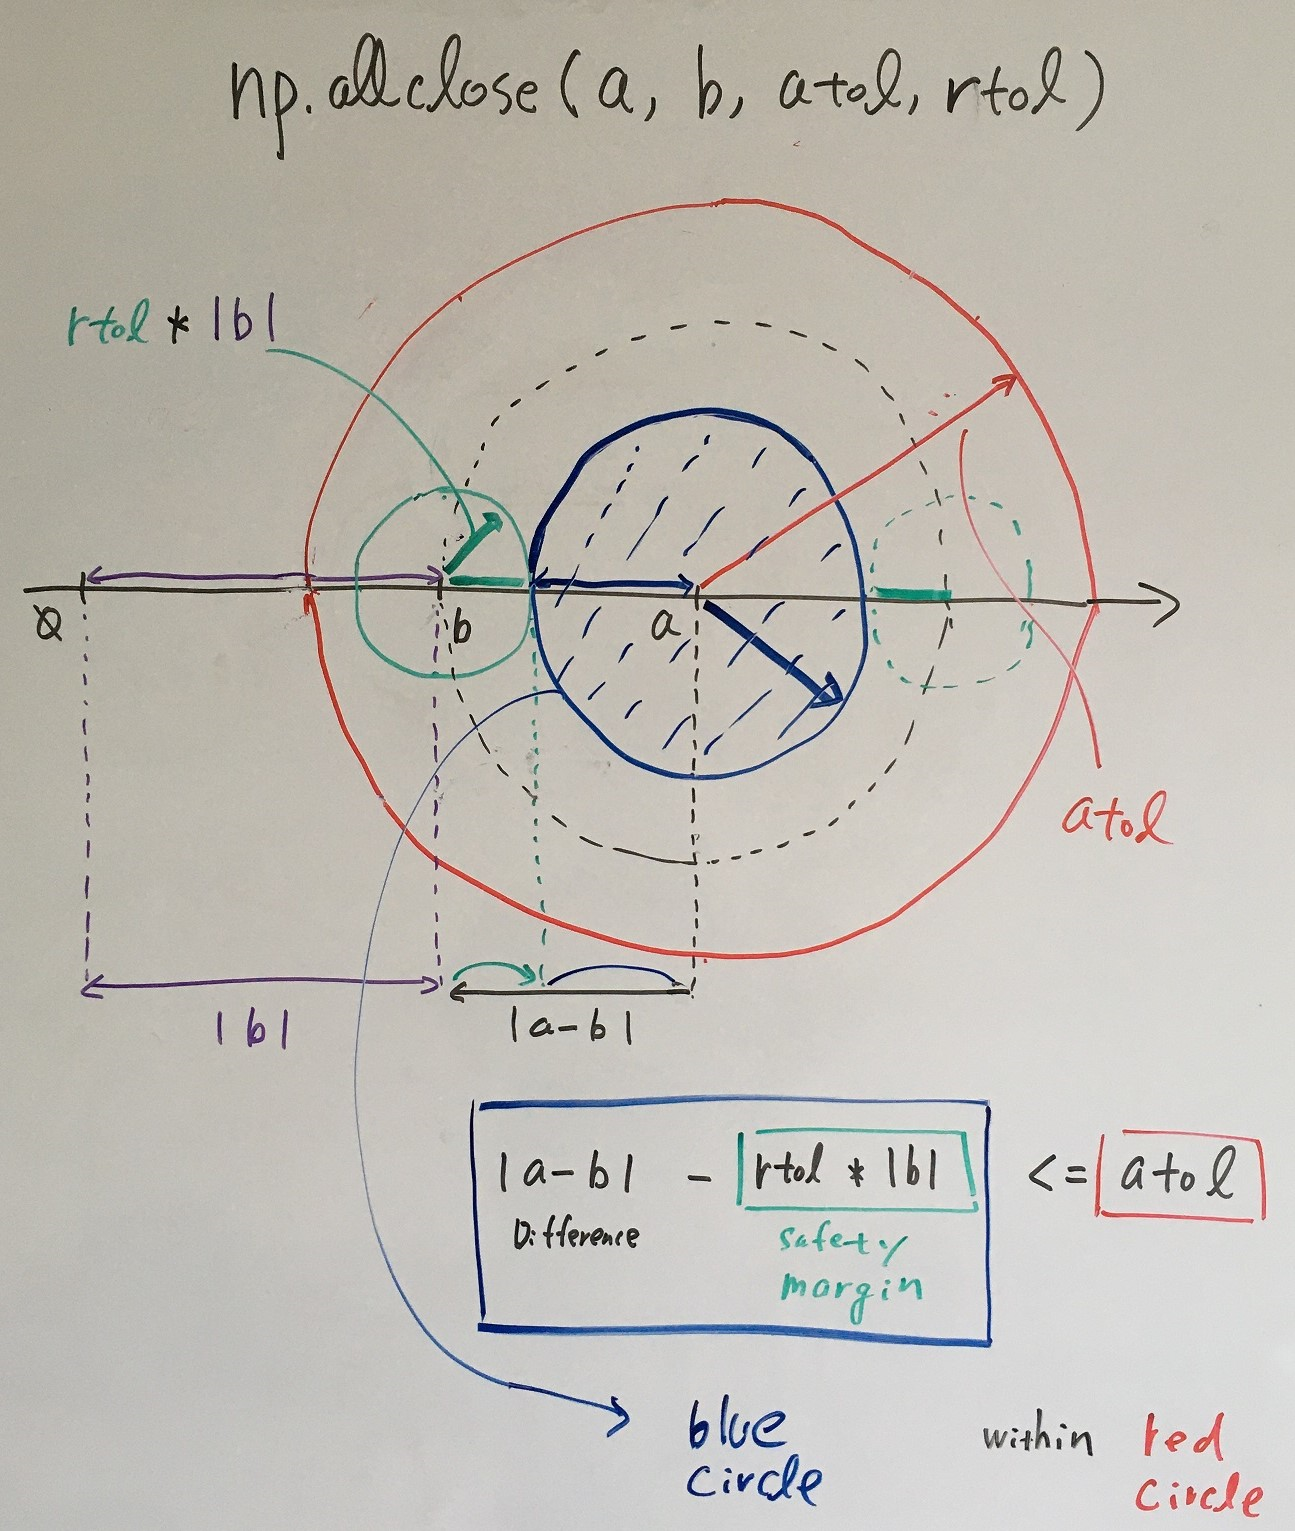 np.allclose(a, b, atol, rtol)
rtol * |b|
0
b
a
atol
|b|
|a-b|
|a-b| - rtol * |b| <= atol
Difference
safety
margin
blue
circle
within
red
circle